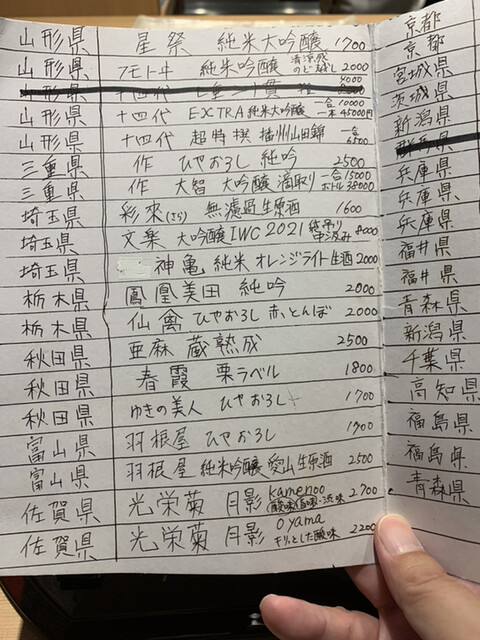 山形県 星祭 純米大吟醸 1700
山形県 フモトヰ 純米吟醸 清涼感 のど越し 2000
山形県 十四代 七垂二十貫
山形県 十四代 EXTRA 純米大吟醸 一合10000 一本45000円
山形県 十四代 超特撰 播州山田錦 一合 6500
三重県 作 ひやおろし 純吟 2500
三重県 作 大智 大吟醸 滴取り 一合15000 ボトル38000
埼玉県 彩來(さら) 無濾過生原酒 1600
埼玉県 文楽 大吟醸IWC2021 袋吊り 中汲み 8000
埼玉県 神亀 純米 オレンジライト生酒 2000
栃木県 鳳凰美田 純吟 2000
栃木県 仙禽 ひやおろし 赤とんぼ 2000
秋田県 亜麻 蔵熟成 2500
秋田県 春霞 栗ラベル 1800
秋田県 ゆきの美人 ひやおろし 1700
富山県 羽根屋 ひやおろし 1900
富山県 羽根屋 純米吟醸 愛山生原酒 2500
佐賀県 光栄菊 月影 kamenoo 酸味・旨味・渋味 2700
佐賀県 光栄菊 月影 oyama キリッとした酸味 2200
京都
京都
宮城県
茨城県
新潟県
群馬県
兵庫県
兵庫県
兵庫県
福井県
福井県
青森県
新潟県
千葉県
高知県
福島県
福島県
青森県